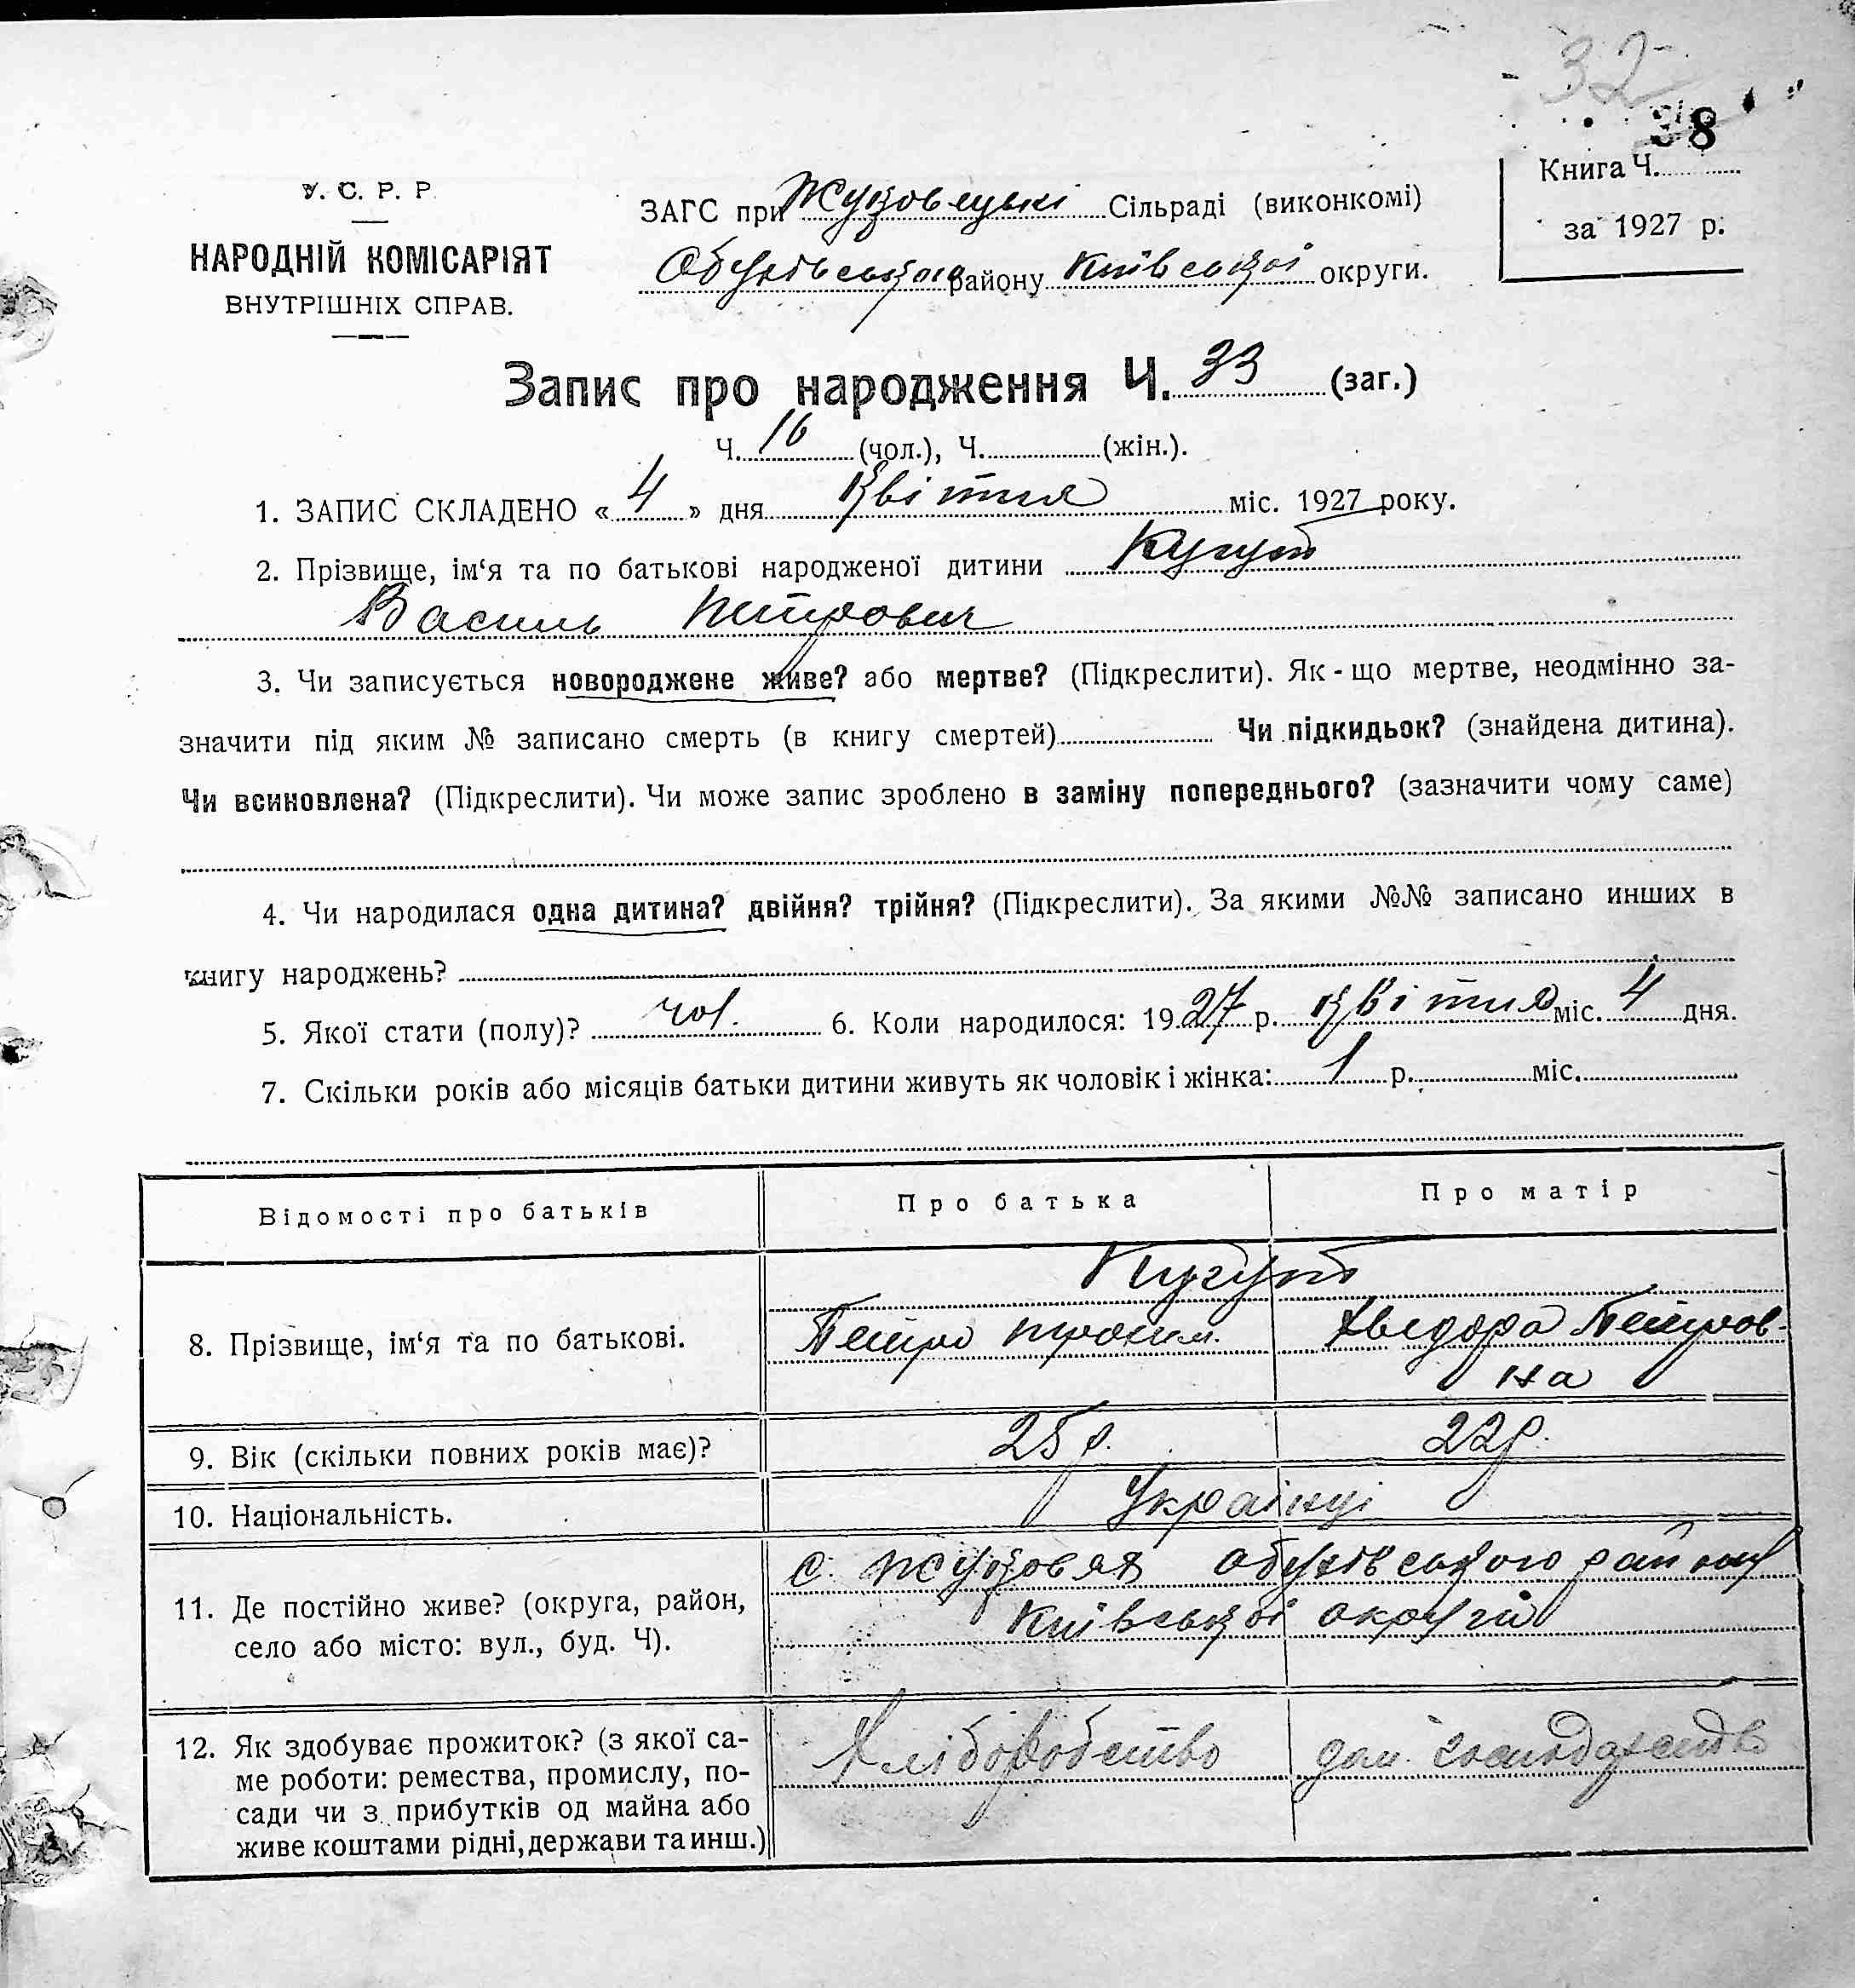 32
38
У. С. Р. Р.
НАРОДНІЙ КОМІСАРІЯТ
ВНУТРІШНІХ СПРАВ.
ЗАГС при Жуковецькі Сільраді (виконкомі)
Обухівського району Київської округи.
Книга Ч.
за 1927 р.
Запис про народження Ч. 33 (заг.)
Ч. 16 (чол.), Ч. (жін.).
1. ЗАПИС СКЛАДЕНО « 4 » дня квітня міс. 1927 року.
2. Прізвище, ім‘я та по батькові народженої дитини Кугут
Василь Петрович
3. Чи записується новороджене живе? або мертве? (Підкреслити). Як - що мертве, неодмінно за-
значити під яким № записано смерть (в книгу смертей) Чи підкидьок? (знайдена дитина).
Чи всиновлена? (Підкреслити). Чи може запис зроблено в заміну попереднього? (зазначити чому саме)
4. Чи народилася одна дитина? двійня? трійня? (Підкреслити). За якими №№ записано инших в
книгу народжень?
5. Якої стати (полу)? чол. 6. Коли народилося: 1927 р. квітня міс. 4 дня.
7. Скільки років або місяців батьки дитини живуть як чоловік і жінка: 1 р. міс.
Відомості про батьків Про батька Про матір
Кугут
8. Прізвище, ім‘я та по батькові. Петро Троким. Хведора Петров-
на
9. Вік (скільки повних років має)? 25 р. 22 р.
10. Національність. Українці
11. Де постійно живе? (округа, район,
село або місто: вул., буд. Ч).
с. Жуковця обухівського району
Київської округи
12. Як здобуває прожиток? (з якої са-
ме роботи: ремества, промислу, по-
сади чи з прибутків од майна або
живе коштами рідні, держави та инш.)
Хліборобство дом. господарство